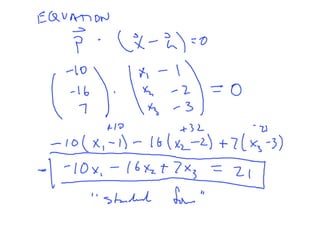 EQUATION
p⃗ · (x⃗ - a⃗) = 0
(-10 -16 7) · (x₁ - 1 x₂ - 2 x₃ - 3) = 0
+10 +32 -21
-10(x₁-1) - 16(x₂-2) + 7(x₃-3)
-10x₁ - 16x₂ + 7x₃ = 21
"standard form"